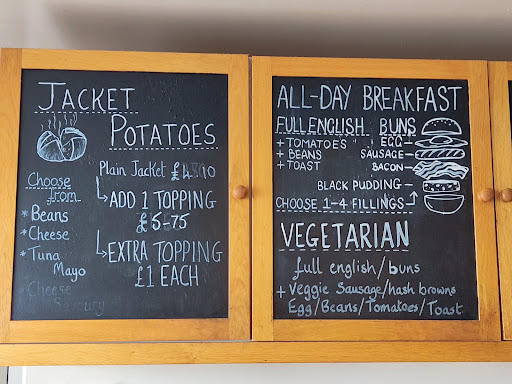 JACKET
POTATOES
Plain Jacket £4.00
ADD 1 TOPPING
£5-75
EXTRA TOPPING
£1 EACH
Choose
from
* Beans
* Cheese
* Tuna
Mayo
Cheese
Savoury
ALL-DAY BREAKFAST
FULL ENGLISH BUNS
+ TOMATOES EGG
+ BEANS SAUSAGE
+ TOAST BACON
BLACK PUDDING
CHOOSE 1-4 FILLINGS
VEGETARIAN
full english/buns
+ Veggie Sausage/hash browns
Egg/Beans/Tomatoes/Toast